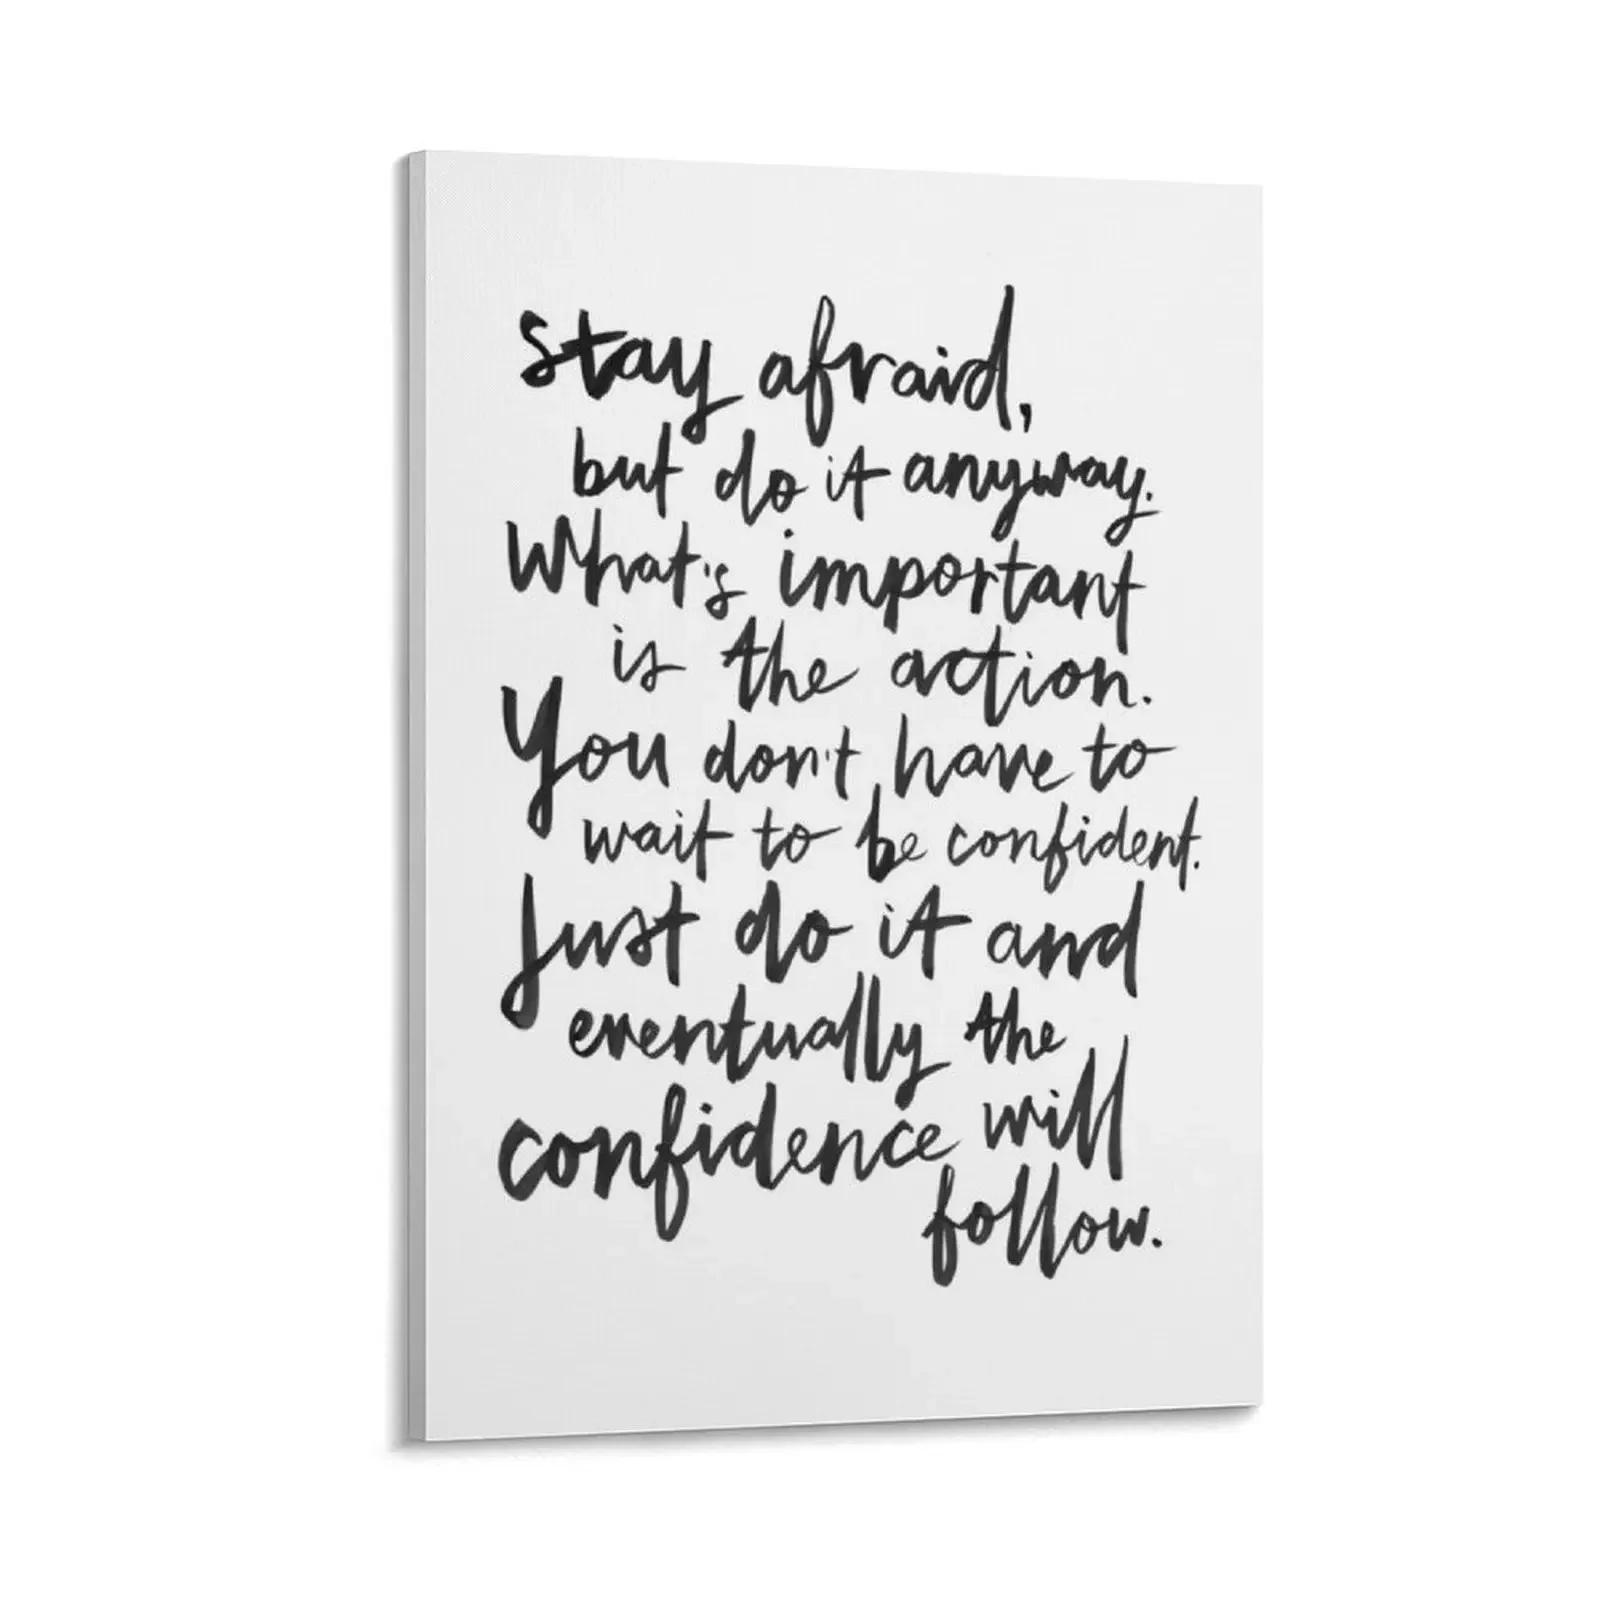 stay afraid,
but do it anyway.
What's important
is the action.
You don't have to
wait to be confident.
Just do it and
eventually the
confidence will
follow.